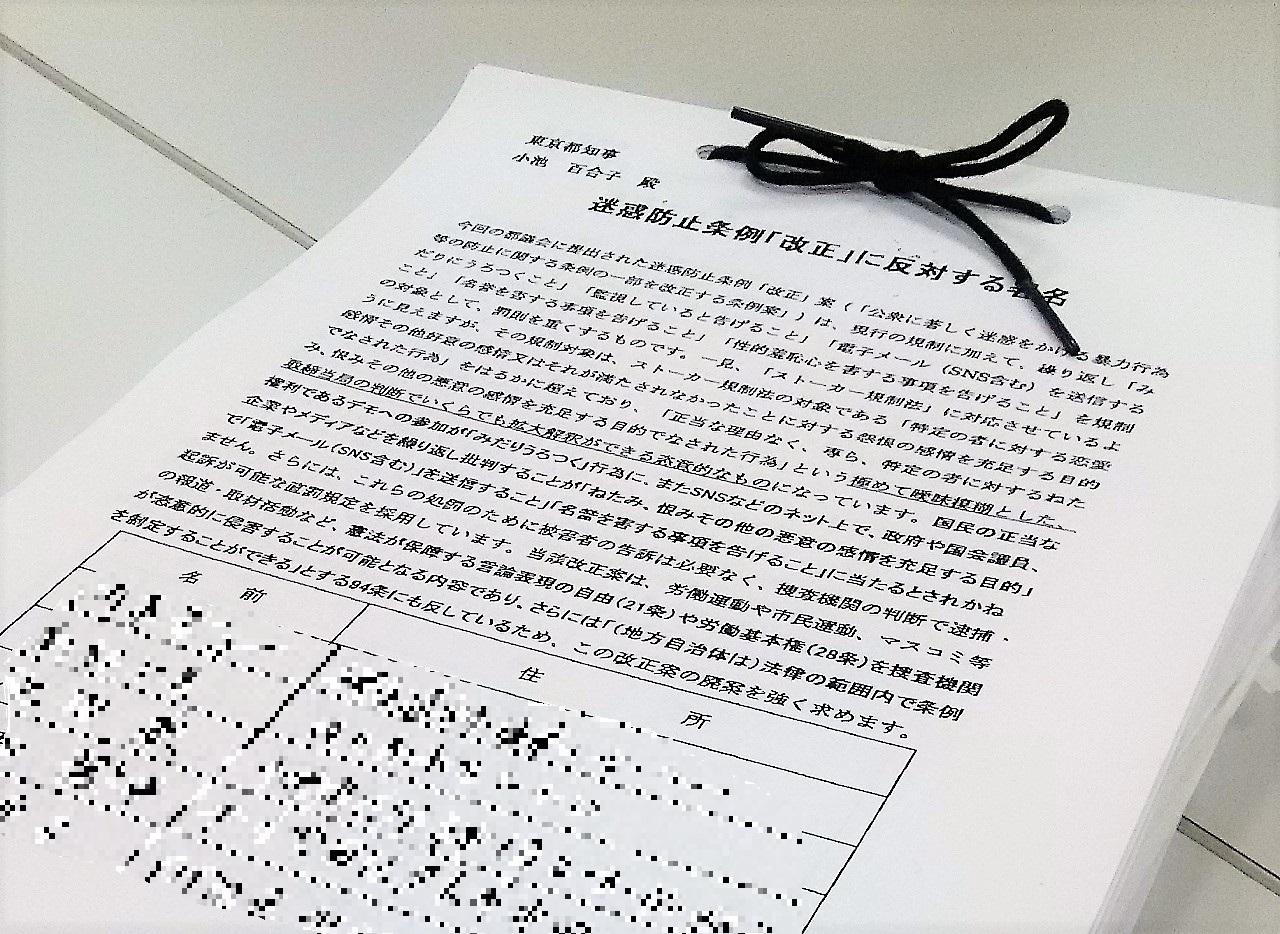 東京都知事
小池 百合子 殿
迷惑防止条例「改正」に反対する署名
今回の都議会に提出された迷惑防止条例「改正」案（「公衆に著しく迷惑をかける暴力行為
等の防止に関する条例の一部を改正する条例案」）は、現行の規制に加えて、繰り返し「み
だりにうろつくこと」「監視していると告げること」「電子メール（SNS含む）を送信する
こと」「名誉を害する事項を告げること」「性的羞恥心を害する事項を告げること」を規制
の対象として、罰則を重くするものです。一見、「ストーカー規制法」に対応させているよ
うに見えますが、その規制対象は、ストーカー規制法の対象である「特定の者に対する恋愛
感情その他好意の感情又はそれが満たされなかったことに対する怨恨の感情を充足する目的
でなされた行為」をはるかに超えており、「正当な理由なく、専ら、特定の者に対するねた
み、恨みその他の悪意の感情を充足する目的でなされた行為」という極めて曖昧模糊とした、
取締当局の判断でいくらでも拡大解釈ができる恣意的なものになっています。国民の正当な
権利であるデモへの参加が「みだりうろつく」行為に、またSNSなどのネット上で、政府や国会議員、
企業やメディアなどを繰り返し批判することが「ねたみ、恨みその他の悪意の感情を充足する目的」
で「電子メール(SNS含む)」を送信すること」「名誉を害する事項を告げること」に当たるとされかね
ません。さらには、これらの処罰のために被害者の告訴は必要なく、捜査機関の判断で逮捕・
起訴が可能な直罰規定を採用しています。当該改正案は、労働運動や市民運動、マスコミ等
の報道・取材活動など、憲法が保障する言論表現の自由(21条)や労働基本権(28条)を捜査機関
が恣意的に侵害することが可能となる内容であり、さらには「(地方自治体は)法律の範囲内で条例
を制定することができる」とする94条にも反しているため、この改正案の廃案を強く求めます。
名 前 住 所